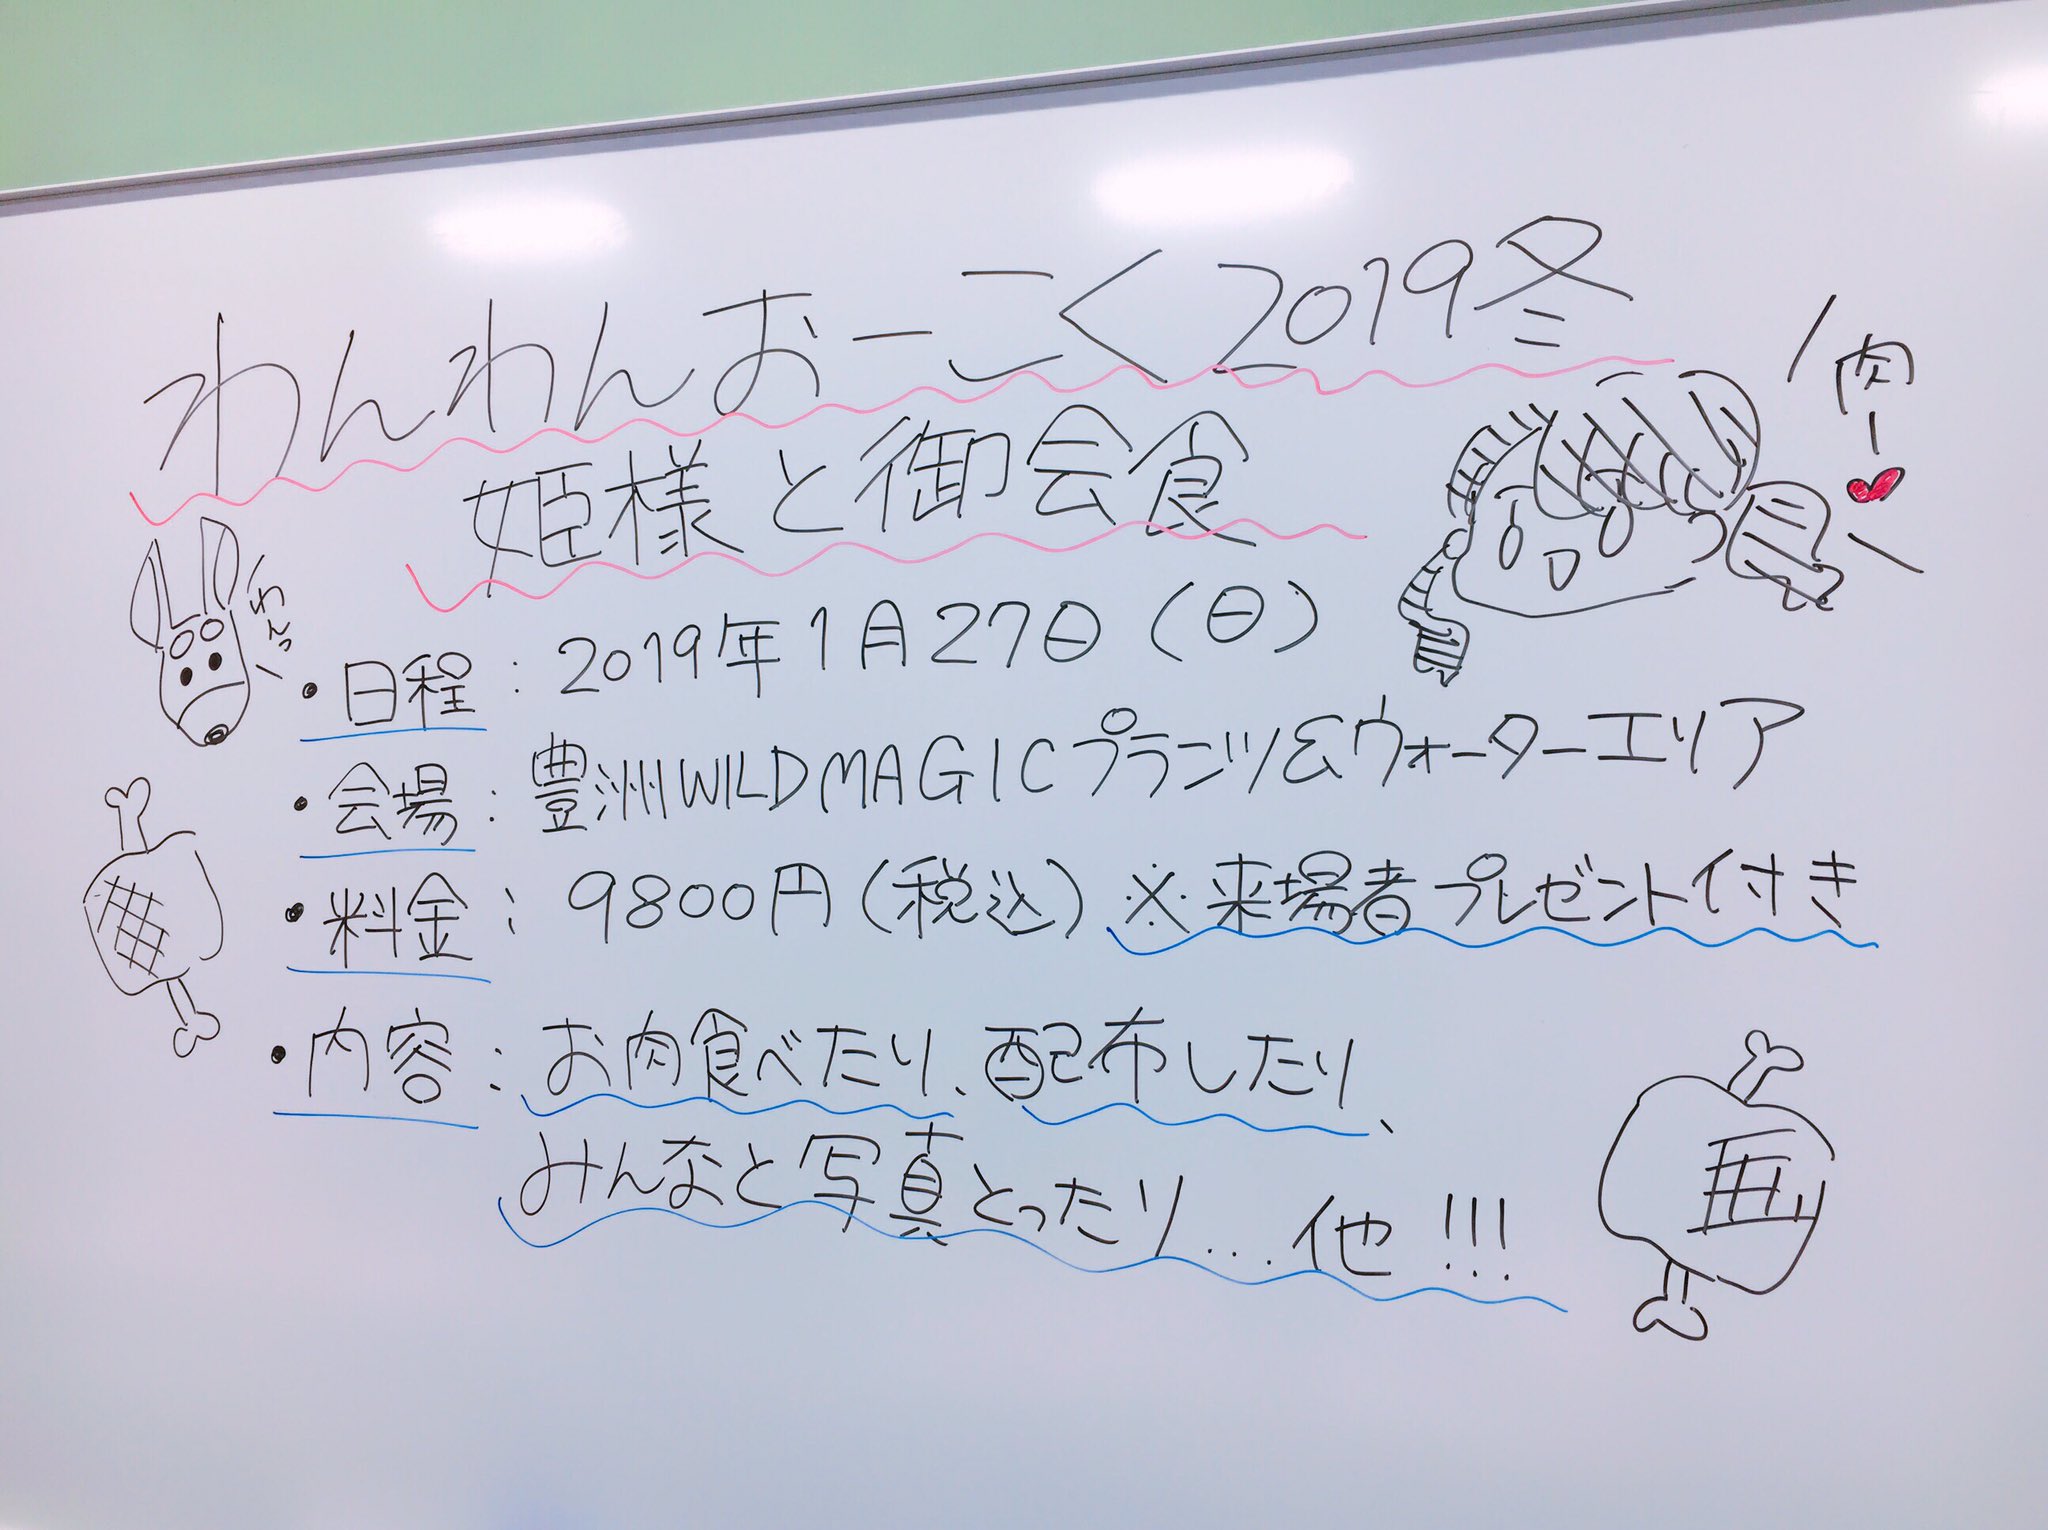 わんわんおーこく2019冬
姫様と御会食
肉ー
わんっ
・日程：2019年1月27日(日)
・会場：豊洲WILDMAGICプランツ&ウォーターエリア
・料金：9800円(税込)※来場者プレゼント付き
・内容：お肉食べたり、配布したり、
みんなと写真とったり...他!!!